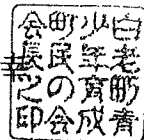 白老町青
少年育成
町民の会
会長之印
幸